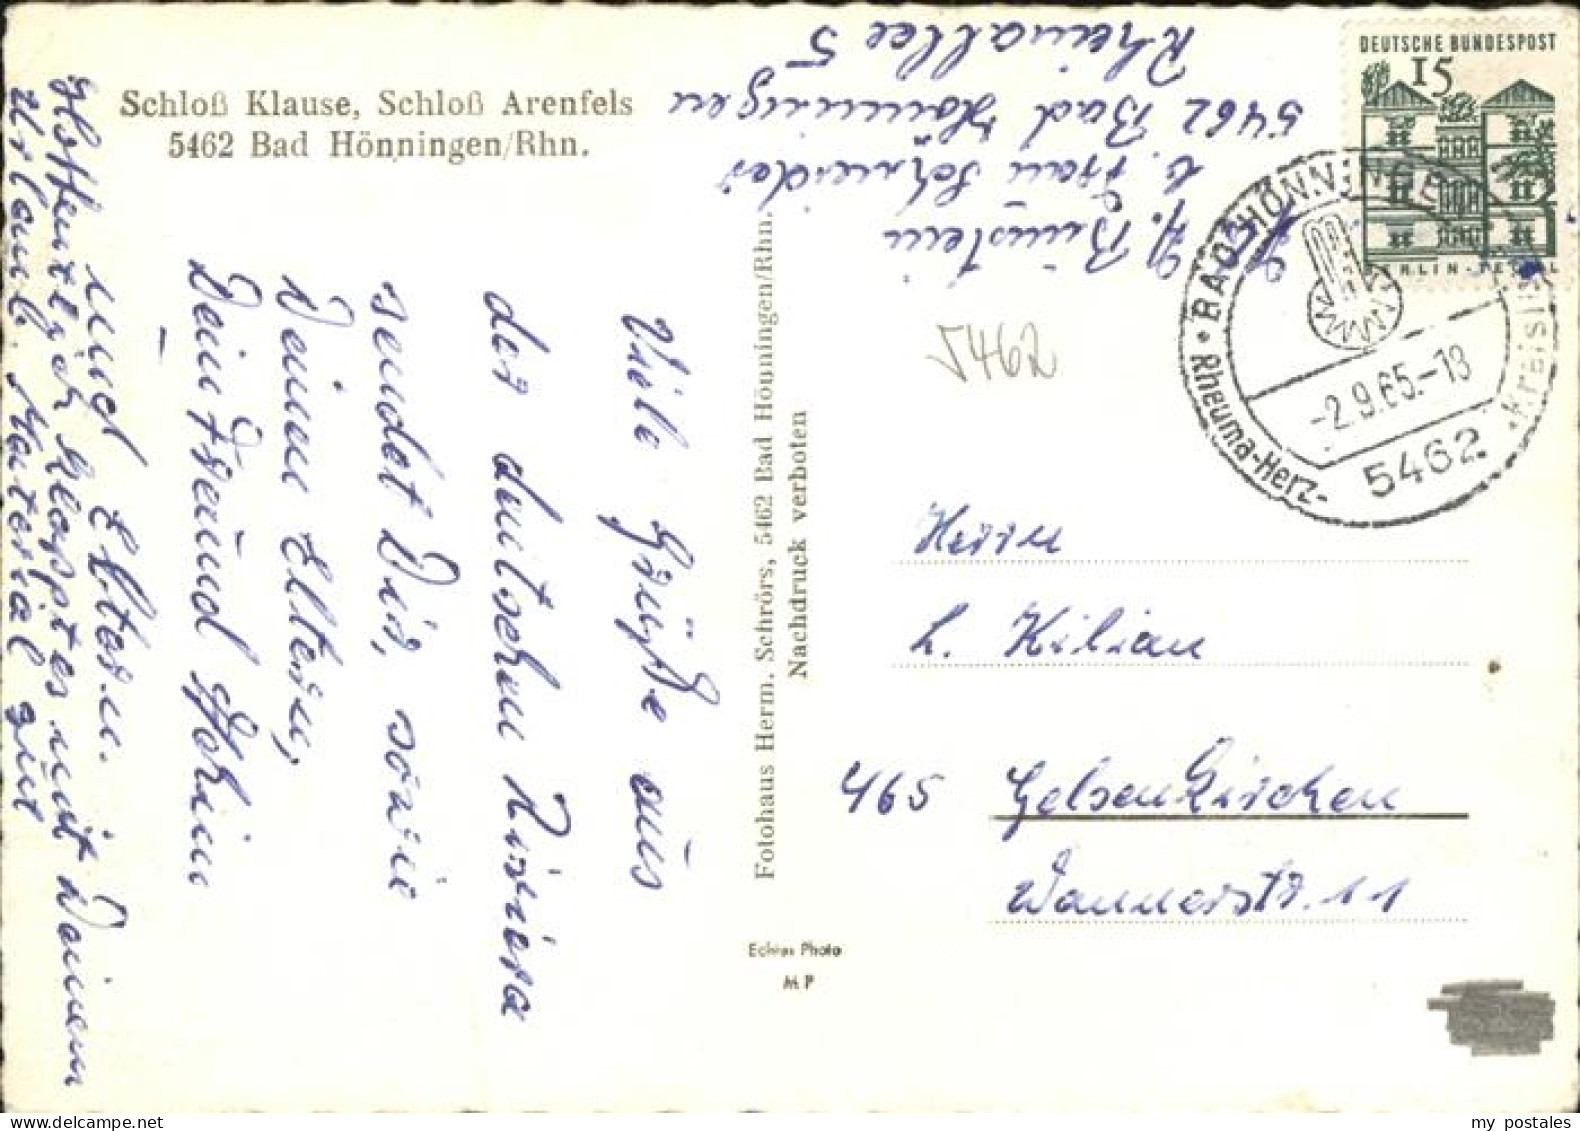 Schloß Klause, Schloß Arenfels
5462 Bad Hönningen/Rhn.
Viele Grüße aus
der deutschen Riviera
sendet Dir, sowie
Deinen Eltern,
Dein Freund
und Eltern.
Hoffentlich klappt es mit Deinem
Urlaub. Material gut
Fotohaus Herm. Schrörs, 5462 Bad Hönningen/Rhn.
Nachdruck verboten
Echtes Photo
M P
b. Frau Schneider
5462 Bad Hönningen
Rheinallee 5
5462
DEUTSCHE BUNDESPOST
15
BERLIN-TEGEL
BAD HÖNNINGEN
-2.9.65.-18
5462
Rheuma-Herz-Kreisl
Herrn
L. Kilian
465 Gelsenkirchen
Wannerstr. 11
my postales